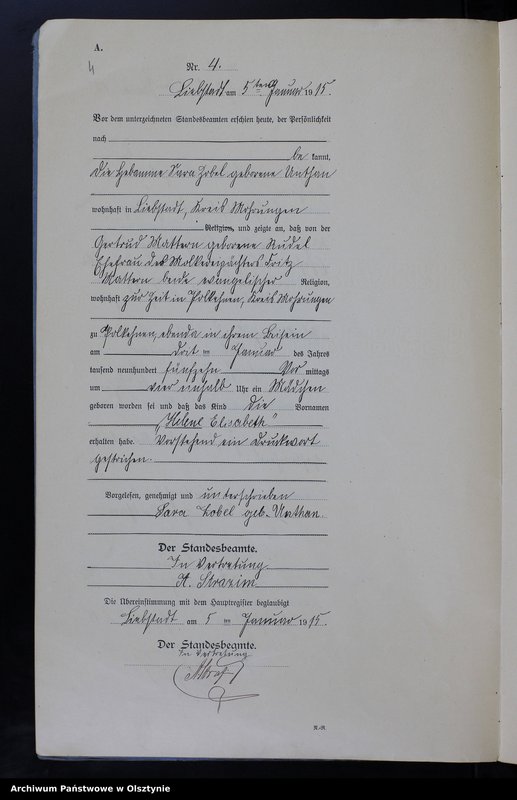 A.
4
Nr. 4.
Liebstadt am 5 ten Januar 1915.
Vor dem unterzeichneten Standesbeamten erschien heute, der Persönlichkeit
nach
be kannt,
die Hebamme Sara Zobel geborene Unthan
wohnhaft in Liebstadt, Kreis Mohrungen
Religion, und zeigte an, daß von der
Gertrud Mattern geborene Rudel
Ehefrau des Molkereipächters Fritz
Mattern beide evangelischer Religion,
wohnhaft zur Zeit in Polkehnen, Kreis Mohrungen
zu Polkehnen, ebenda in ihrem Beisein
am drit ten Januar des Jahres
tausend neunhundert fünfzehn Vor mittags
um vier einhalb Uhr ein Mädchen
geboren worden sei und daß das Kind die Vornamen
„Helene Elisabeth"
erhalten habe. Vorstehend ein Druckwort
gestrichen.
Vorgelesen, genehmigt und unterschrieben
Sara Zobel geb. Unthan.
Der Standesbeamte.
In Vertretung
A.
Die Übereinstimmung mit dem Hauptregister beglaubigt
Liebstadt am 5 ten Januar 1915.
Der Standesbeamte.
In Vertretung
R.-R.
Archiwum Państwowe w Olsztynie